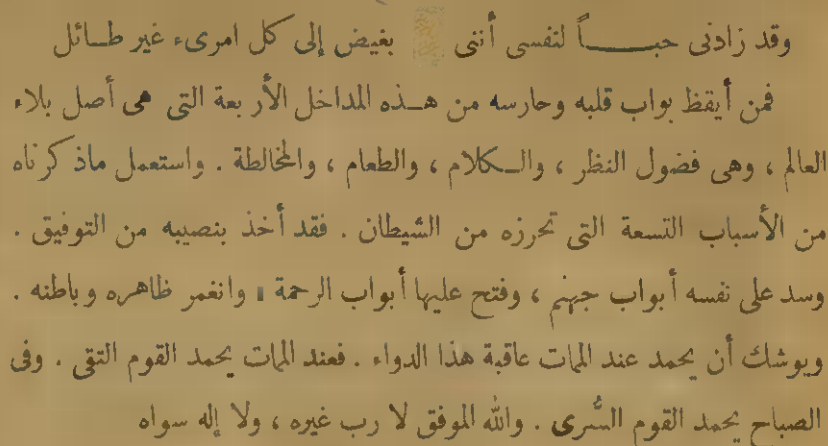 وقد زادنى حبــــاً لنفسى أننى بغيض إلى كل امرىء غير طــائل
فمن أيقظ بواب قلبه وحارسه من هــذه المداخل الأربعة التى هى أصل بلاء
العالم ، وهى فضول النظر ، والــكلام ، والطعام ، والمخالطة . واستعمل ماذكرناه
من الأسباب التسعة التى تحرزه من الشيطان . فقد أخذ بنصيبه من التوفيق .
وسد على نفسه أبواب جهنم ، وفتح عليها أبواب الرحمة ، وانغمر ظاهره وباطنه .
ويوشك أن يحمد عند الممات عاقبة هذا الدواء . فعند الممات يحمد القوم التقى . وفى
الصباح يحمد القوم السُّرى . والله الموفق لا رب غيره ، ولا إله سواه